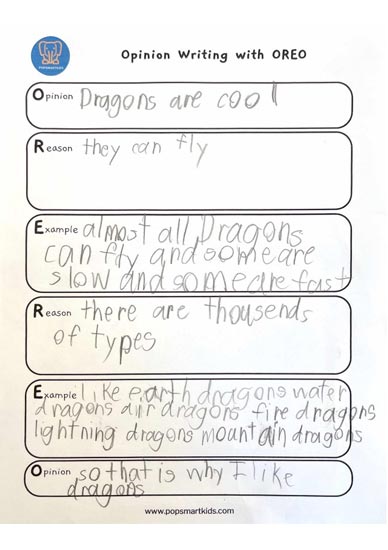 POPSMARTKIDS
Opinion Writing with OREO
Opinion Dragons are cool
Reason they can fly
Example almost all Dragons
can fly and some are
slow and some are fast
Reason there are thousends
of types
Example like earth dragons water
dragons air dragons fire dragons
lightning dragons mountain dragons
Opinion so that is why I like
dragons
www.popsmartkids.com